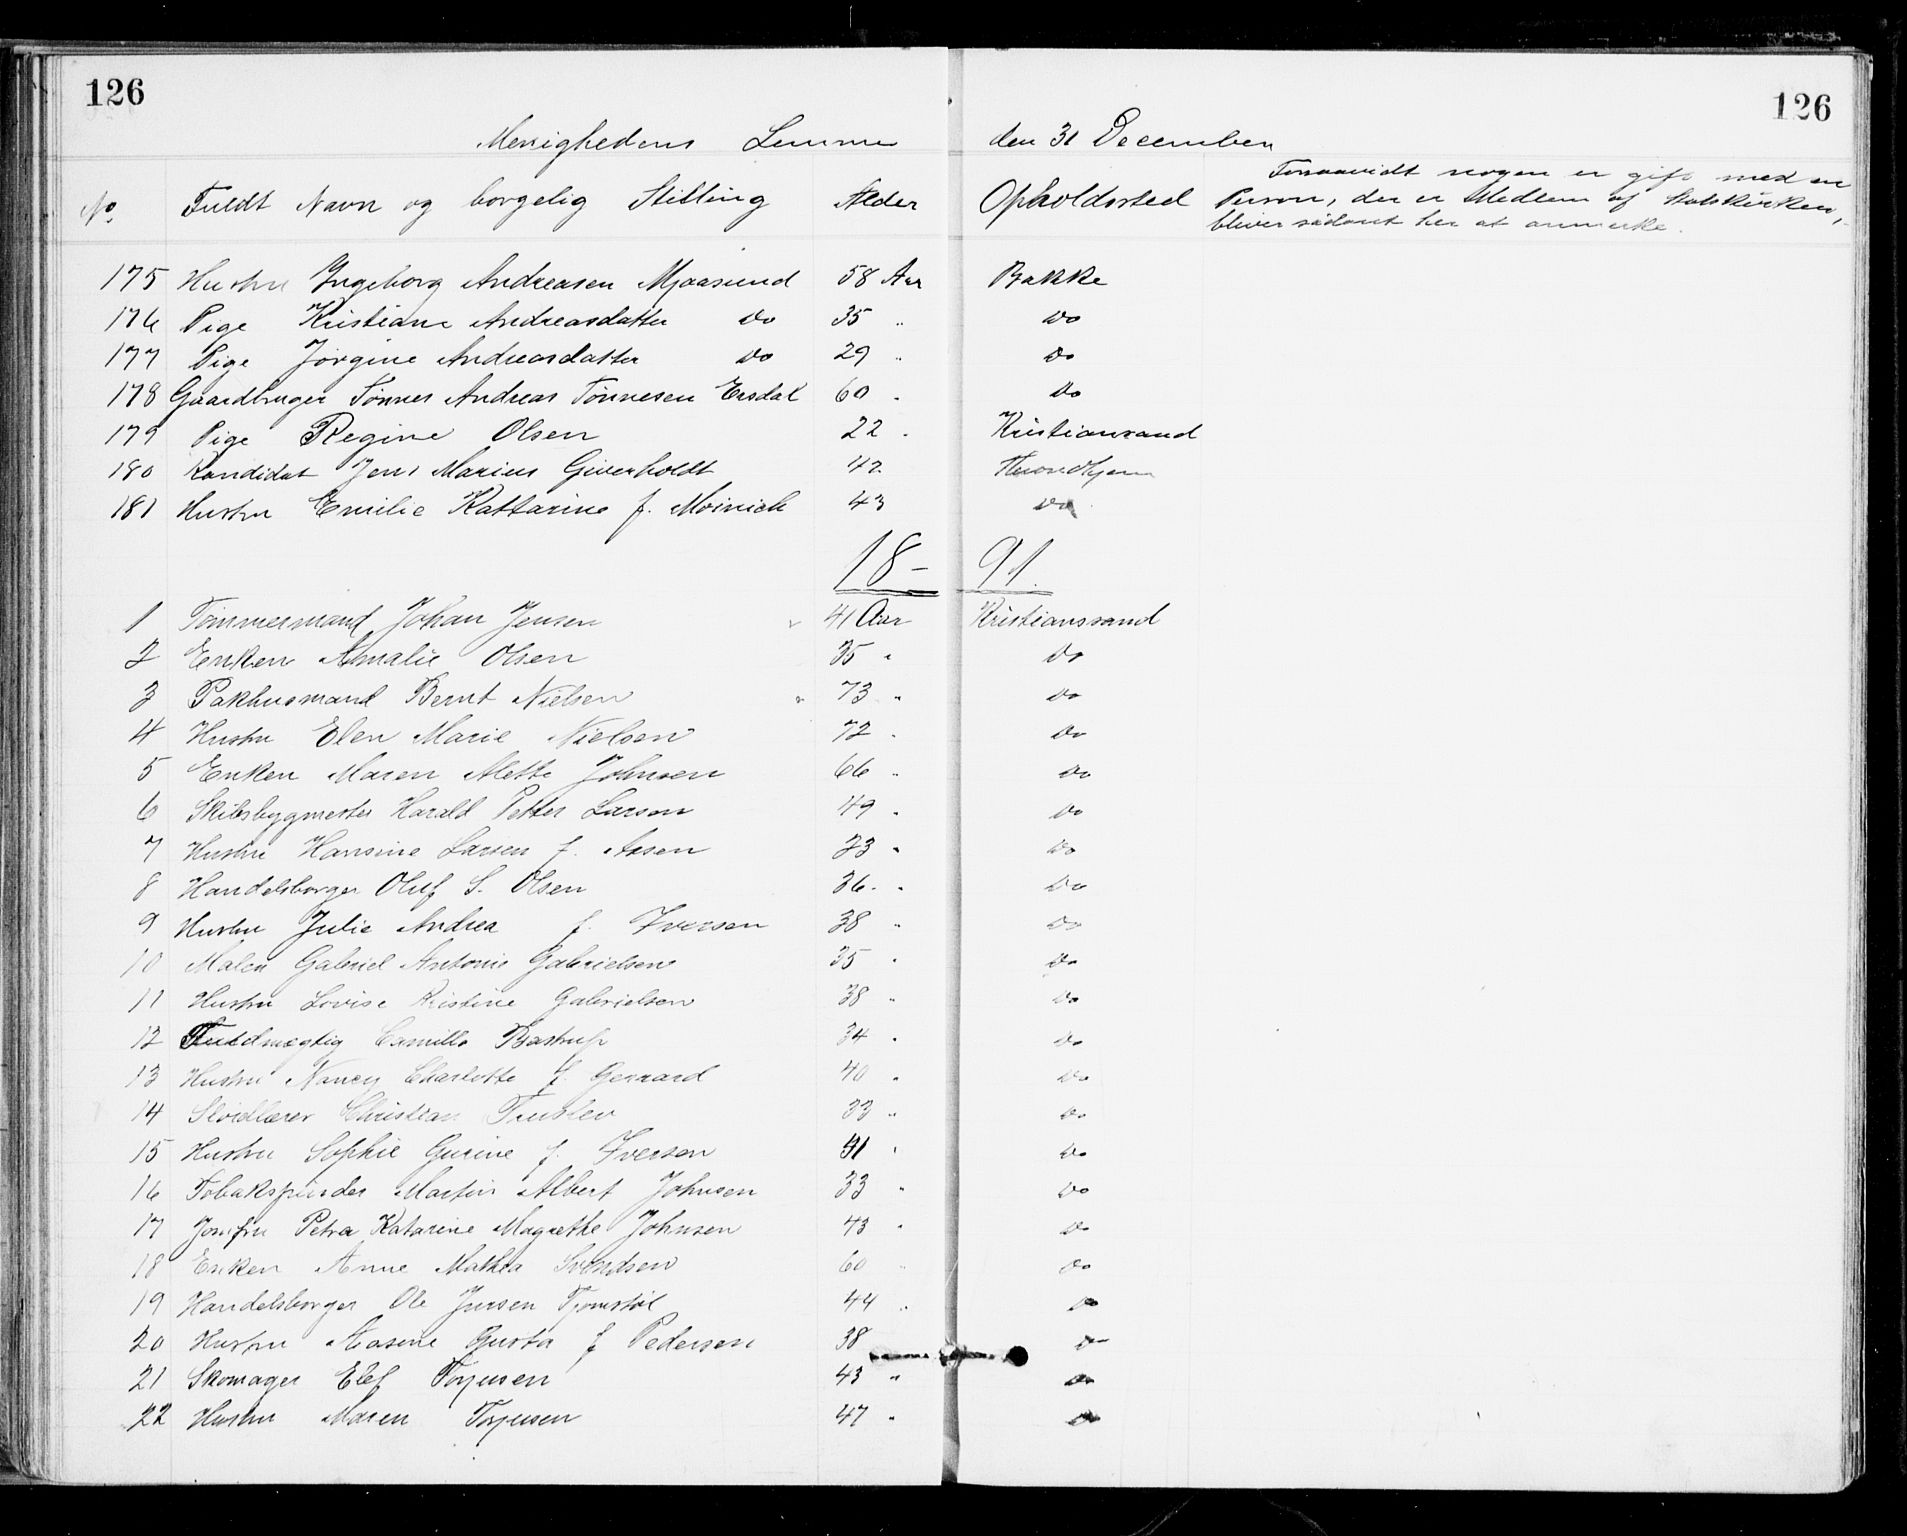 126 126
Menighedens Lemmer den 31 December
No. Fuldt Navn og borgelig Stilling Alder Opholdssted Forsaavidt nogen er gift med en
Person, der er Medlem af Statskirken,
bliver sådant her at anmerke.
175 Hustru Ingeborg Andreasen Mjaasund 58 Aar Bakke
176 Pige Kristiane Andreasdatter Do 35 " Do
177 Pige Jørgine Andreasdatter Do 29 " Do
178 Gaardbruger Tønnes Andreas Tønnesen Ersdal 60 " Do
179 Pige Regine Olsen 22 " Kristianssand
180 Kandidat Jens Marius Giverholdt 42
181 Hustru Emilie Kattarine f. Moinich 43 Do
18 - 91.
1 Tømmermand Johan Jensen 41 Aar Kristianssand
2 Enken Amalie Olsen 35 " Do
3 Pakhusmand Bernt Nielsen 73 " Do
4 Hustru Elen Marie Nielsen 72 " Do
5 Enken Maren Mette Johnsen 66 " Do
6 Skibsbygmester Harald Petter Larsen 49 " Do
7 Hustru Hansine Larsen f. Aasen 23 " Do
8 Handelsborger Oluf S. Olsen 36 " Do
9 Hustru Julie Andrea f. Iversen 38 " Do
10 Maler Gabriel Antonie Gabrielsen 35 " Do
11 Hustru Lovise Kristine Gabrielsen 38 " Do
12 Fuldmægtig Camillo Bastrup 34 " Do
13 Hustru Nancy Charlotte f. Gerrard 40 " Do
14 Sløidlærer Christian Tuslev 33 " Do
15 Hustru Sophie Gurine f. Iversen 41 " Do
16 Tobakspinder Martin Albert Johnsen 33 " Do
17 Jomfru Petra Katarine Magrethe Johnsen 43 " Do
18 Enken Anne Mathea Svendsen 60 " Do
19 Handelsborger Ole Jensen Tjomstøl 44 " Do
20 Hustru Aasine Gusta f Pedersen 38 Do
21 Skomager Elef Torjusen 43 " Do
22 Hustru Maren Torjusen 47 " Do